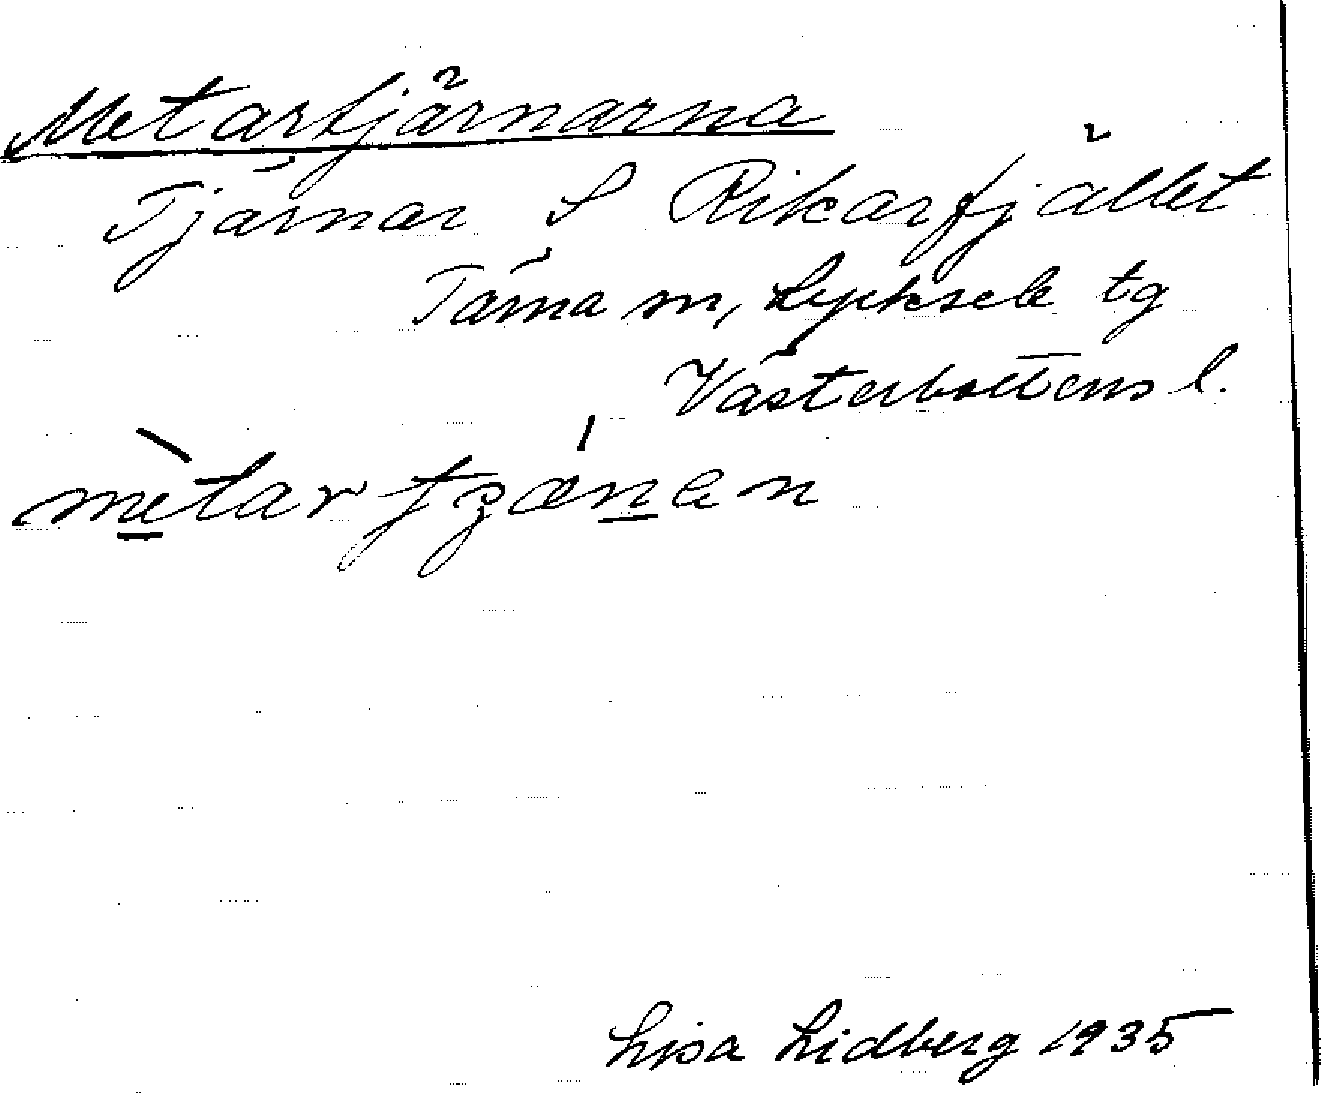 Metartjärnarna
Tjärnar S Rikarfjället
Tärna sn, Lycksele tg
Västerbottens l.
mètartʒǽnen
Lisa Lidberg 1935